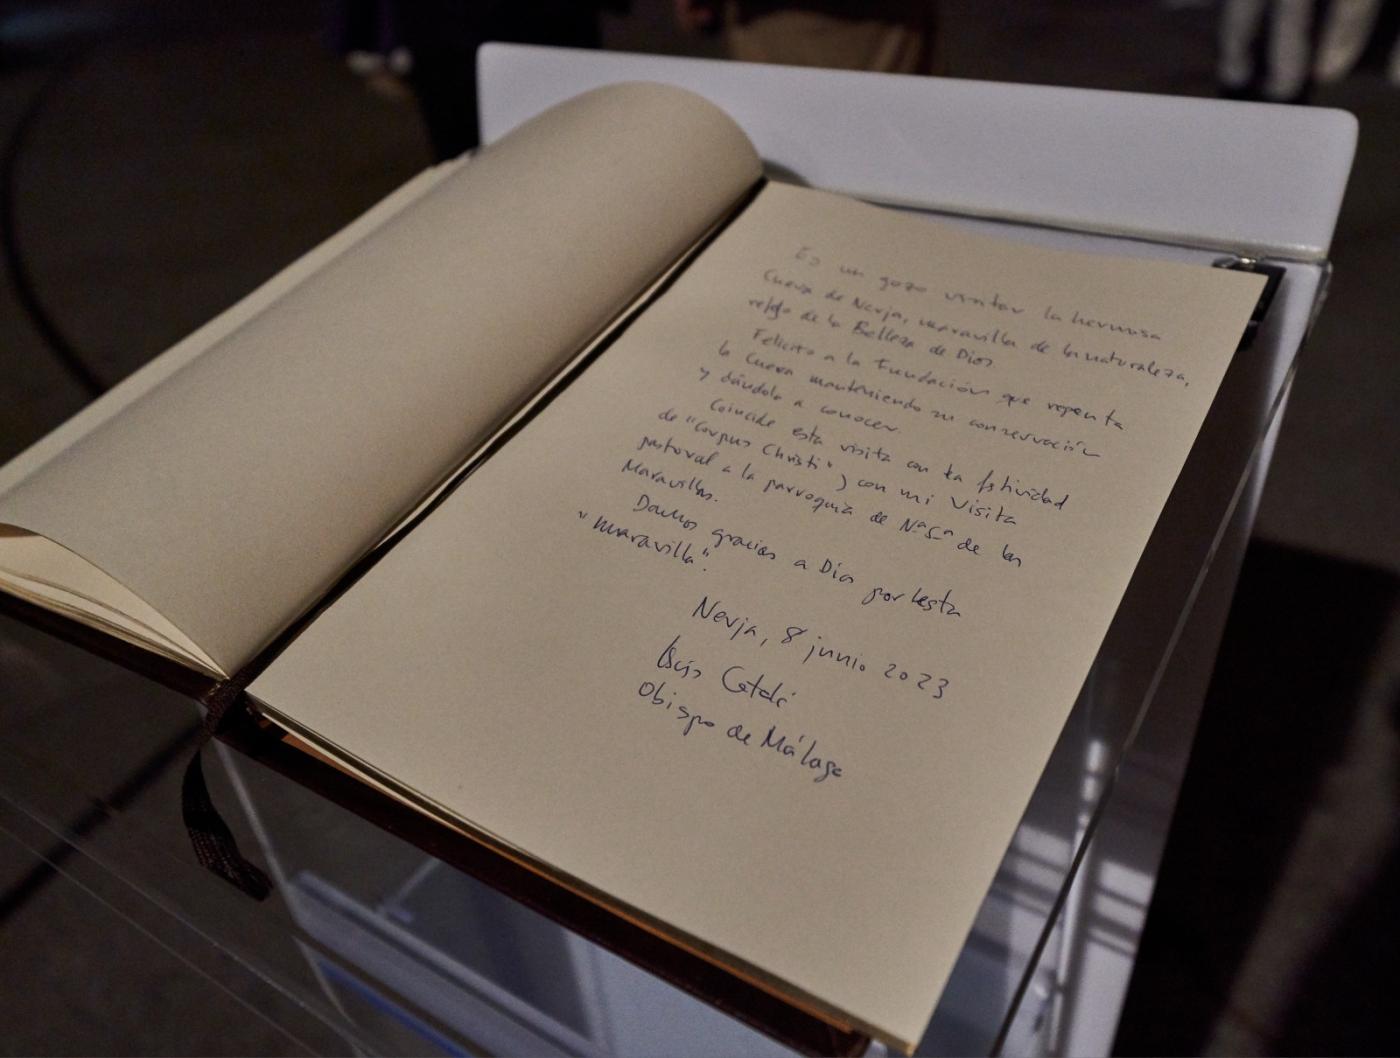 Es un gozo visitar la hermosa
Cueva de Nerja, maravilla de la naturaleza,
reflejo de la Belleza de Dios
Felicito a la Fundación que
la Cueva manteniendo su conservación
y dándola a conocer.
Coincide esta visita con la festividad
de "Corpus Christi" y con mi Visita
pastoral a la parroquia de Nª Sª de las
Maravillas.
Damos gracias a Dios por esta
"maravilla".
Nerja, 8 junio 2023
Catalá
Obispo de Málaga